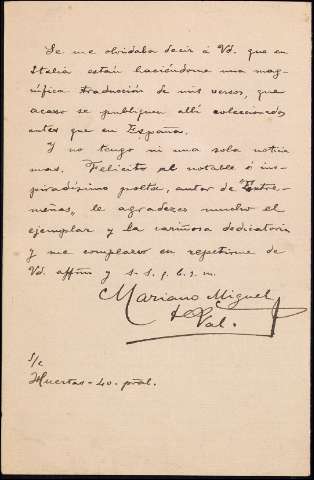 Se me olvidaba decir á Vd. que en
Italia están haciéndome una mag-
nífica traducción de mis versos, que
acaso se publiquen allí coleccionados
antes que en España.
Y no tengo ni una sola noticia
mas. Felicito al notable é ins-
piradísimo poeta, autor de "Extre-
meñas", le agradezco mucho el
ejemplar y la cariñosa dedicatoria
y me complazco en repetirme de
Vd. affmo y s. s. q. b. s. m.
Mariano Miguel
de Val.
S/c
Huertas-40-pral.